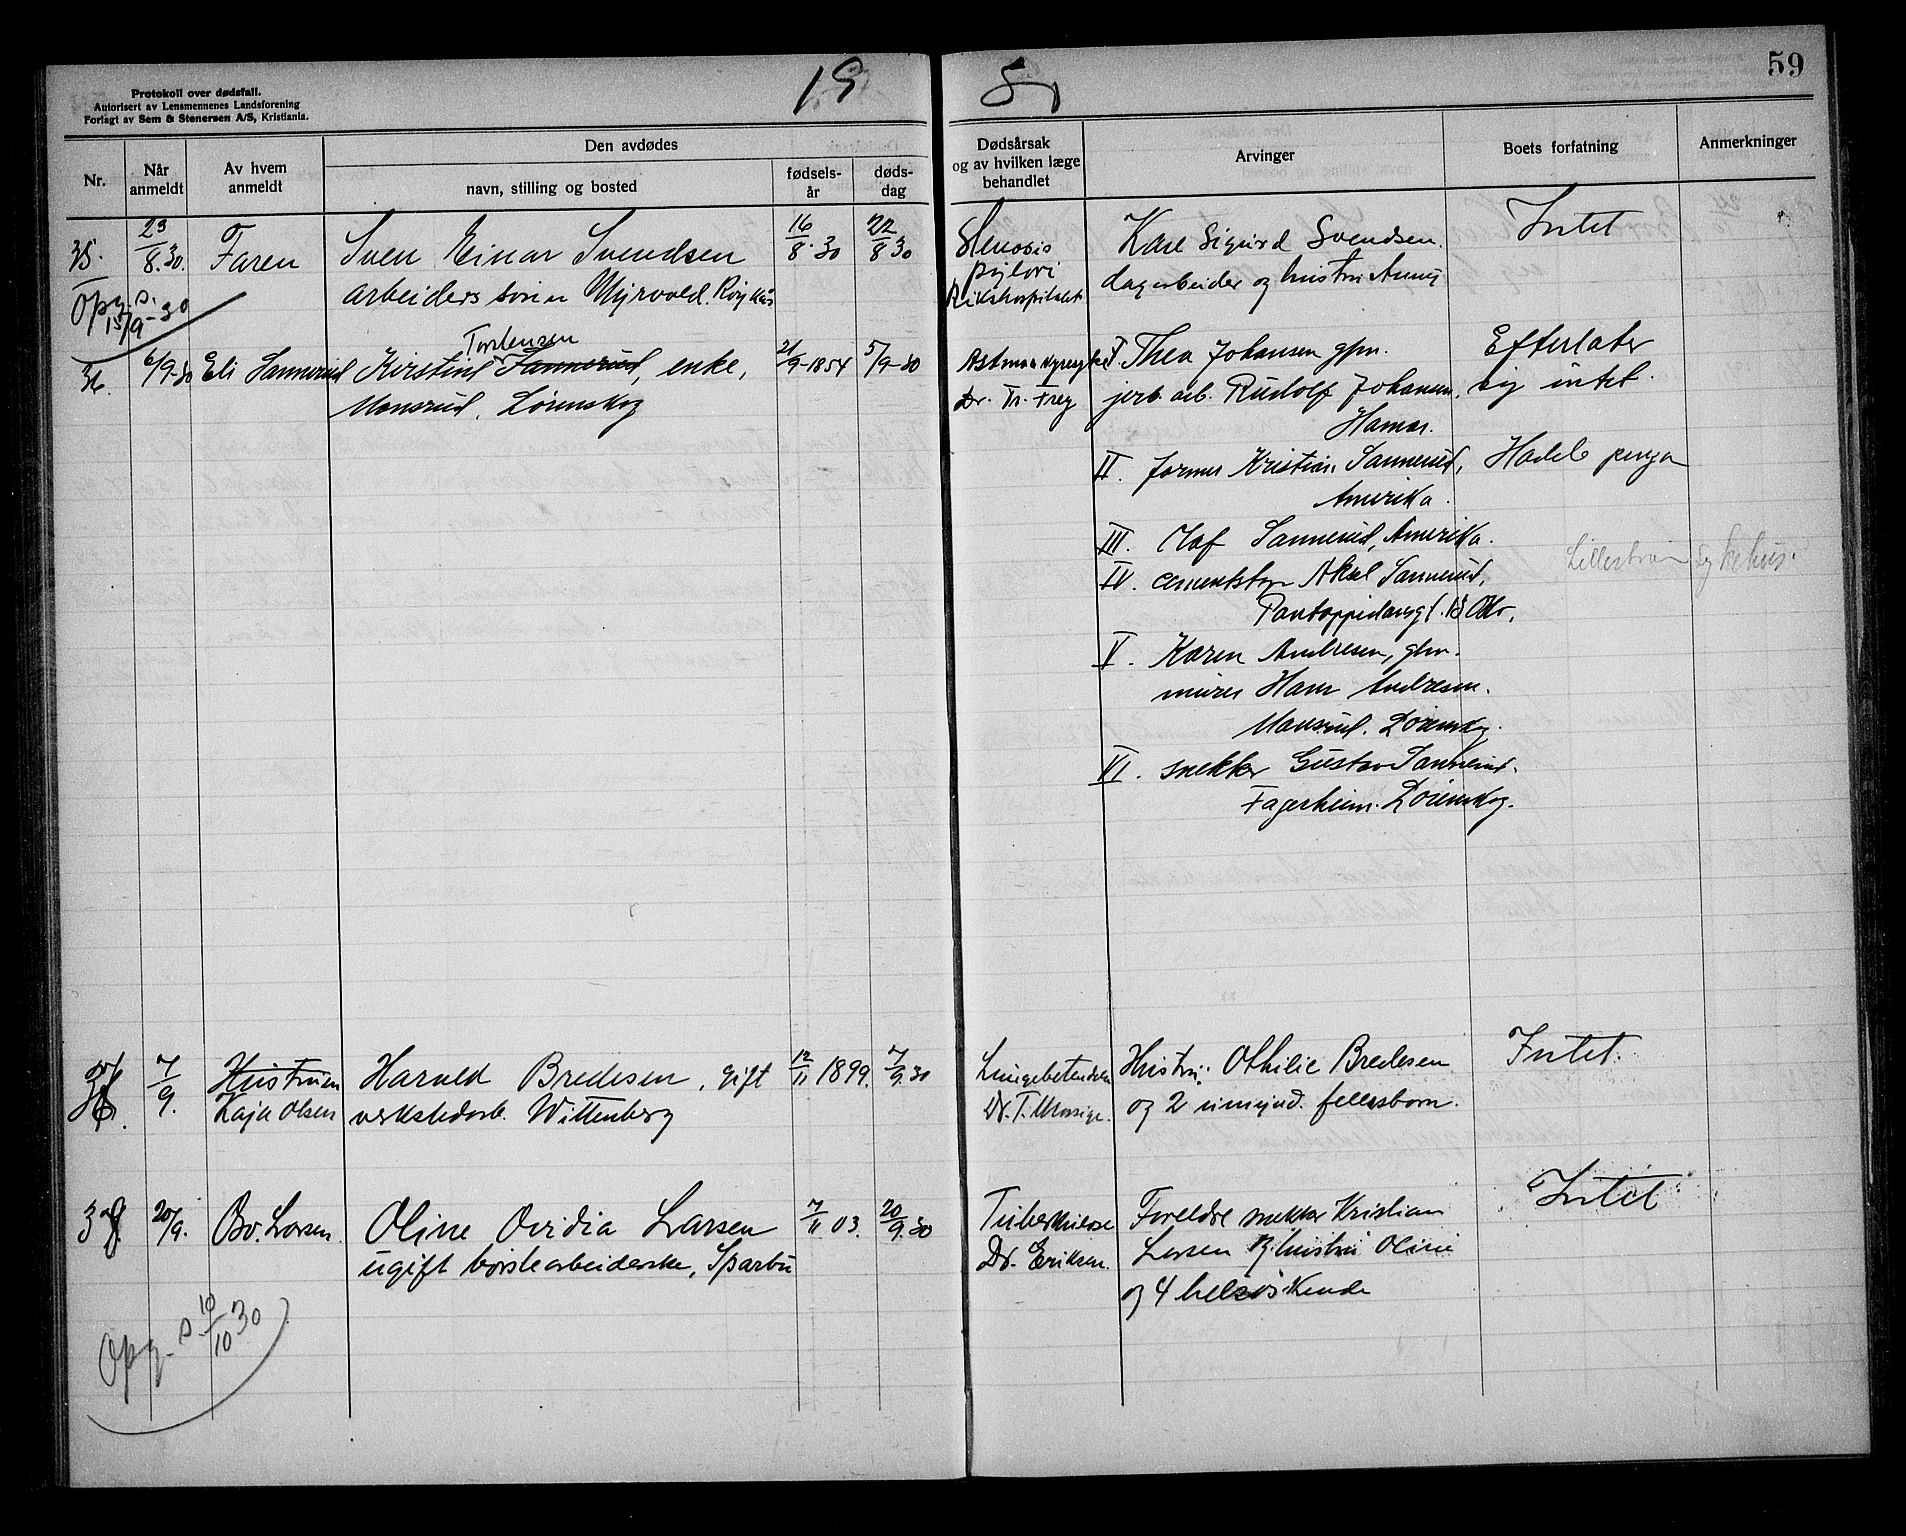 Protokoll over dødsfall.
Autorisert av Lensmennenes Landsforening
Forlagt av Sem & Stenersen A/S, Kristiania.
19
59
Nr.
Når anmeldt
Av hvem anmeldt
Den avdødes
navn, stilling og bosted
fødsels-år
døds-dag
Dødsårsak og av hvilken læge behandlet
Arvinger
Boets forfatning
Anmerkninger
35. 23/8.30. Faren Sven Einar Svendsen 16/8.30 22/8 30
arbeiders sønn Myrvold. Røykås
Opg. s. 15/9-30
Stenosis
pylori
Rikshospitalet
Karl Sigurd Svendsen
dagarbeider og hustru Anny
Intet
Torstensen
36. 6/9-30 Eli Sannerud Kirstine Sannerud, enke, 21/9-1854 5/9-30
Mansrud, Lørenskog
Dr. Fr. Frey
I. Thea Johansen gfm.
jerb. arb. Rudolf Johansen,
Hamar.
II. former Kristian Sannerud,
Amerika.
III. Olaf Sannerud, Amerika.
IV. cementstøp Aksel Sannerud,
Pontoppidansgt. Oslo.
V. Karen Andresen, gfm.
murer Hans Andresen.
Mansrud. Lørenskog.
VI. snekker Gustav Sannerud.
Fagerheim. Lørenskog.
Efterlater
sig intet.
Hadde
Lillestrøm sykehus.
7/9. Hustruen Harald Bredesen, gift 12/11 1899. 7/9.30
Kaja Olsen verkstedarb. Wittenberg
Lungebetendelse
Dr. T. Mossige.
Hustru: Othilie Bredesen
og 2 umynd. fellesborn.
Intet.
38. 20/9. Bv. Larsen. Oline Ovidia Larsen 7/11 03. 20/9.30
ugift børstearbeiderske, Sparbu
Tuberkulose
Dr. Eriksen.
Foreldre snekker Kristian
Larsen og hustru Oline
og 4 helsøskende
Intet
Opg. s. 10/10 30